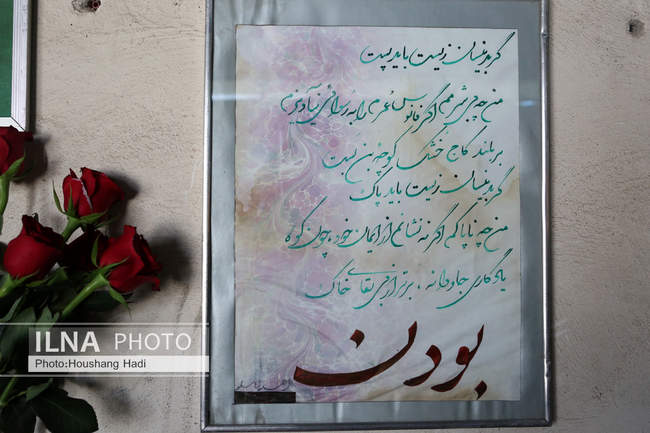 گر بدینسان زیست باید پست
من چه بی شرمم اگر فانوس عمرم را به رسوائی نیاویزم
بر بلند کاج خشک کوچه بن بست
گر بدینسان زیست باید پاک
من چه ناپاکم اگر ننشانم از ایمان خود، چون کوه
یادگاری جاودانه، برتر از بی بقای خاک
بودن
ILNA PHOTO
Photo:Houshang Hadi